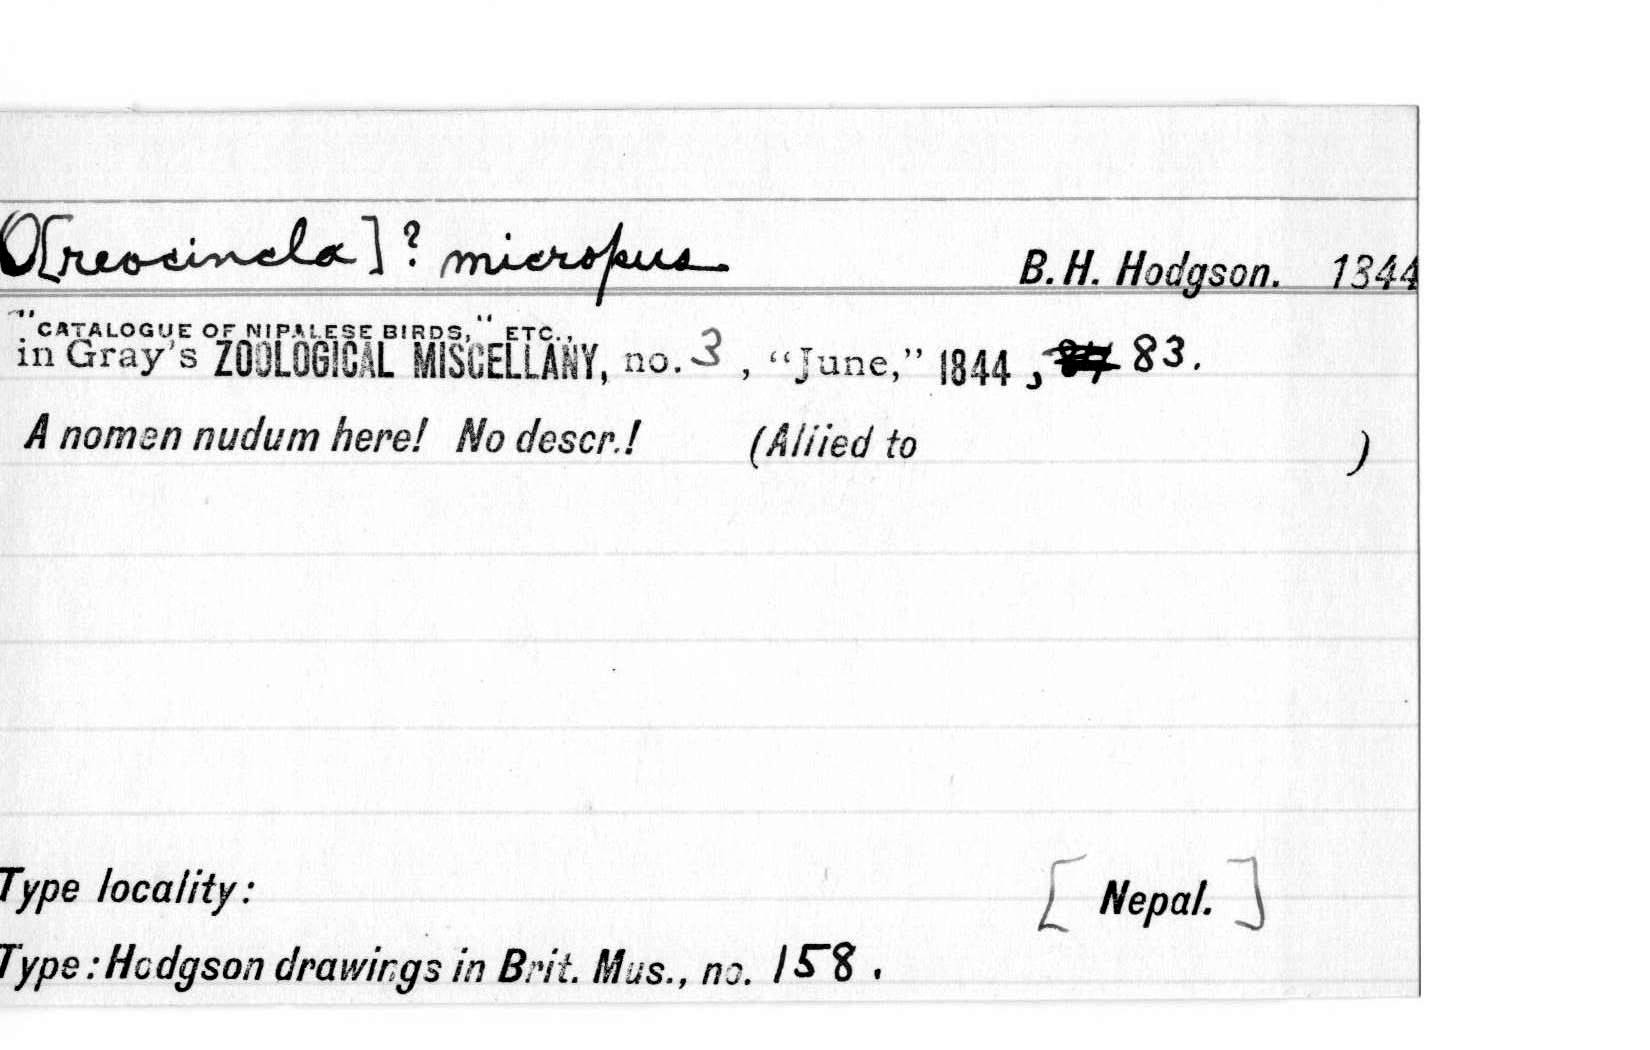 O[reocincla]? micropus B.H. Hodgson. 1844
"CATALOGUE OF NIPALESE BIRDS," ETC.,
in Gray's ZOOLOGICAL MISCELLANY, no. 3, "June," 1844, 83.
A nomen nudum here! No descr.! (Allied to )
Type locality: [Nepal.]
Type: Hodgson drawings in Brit. Mus., no. 158.